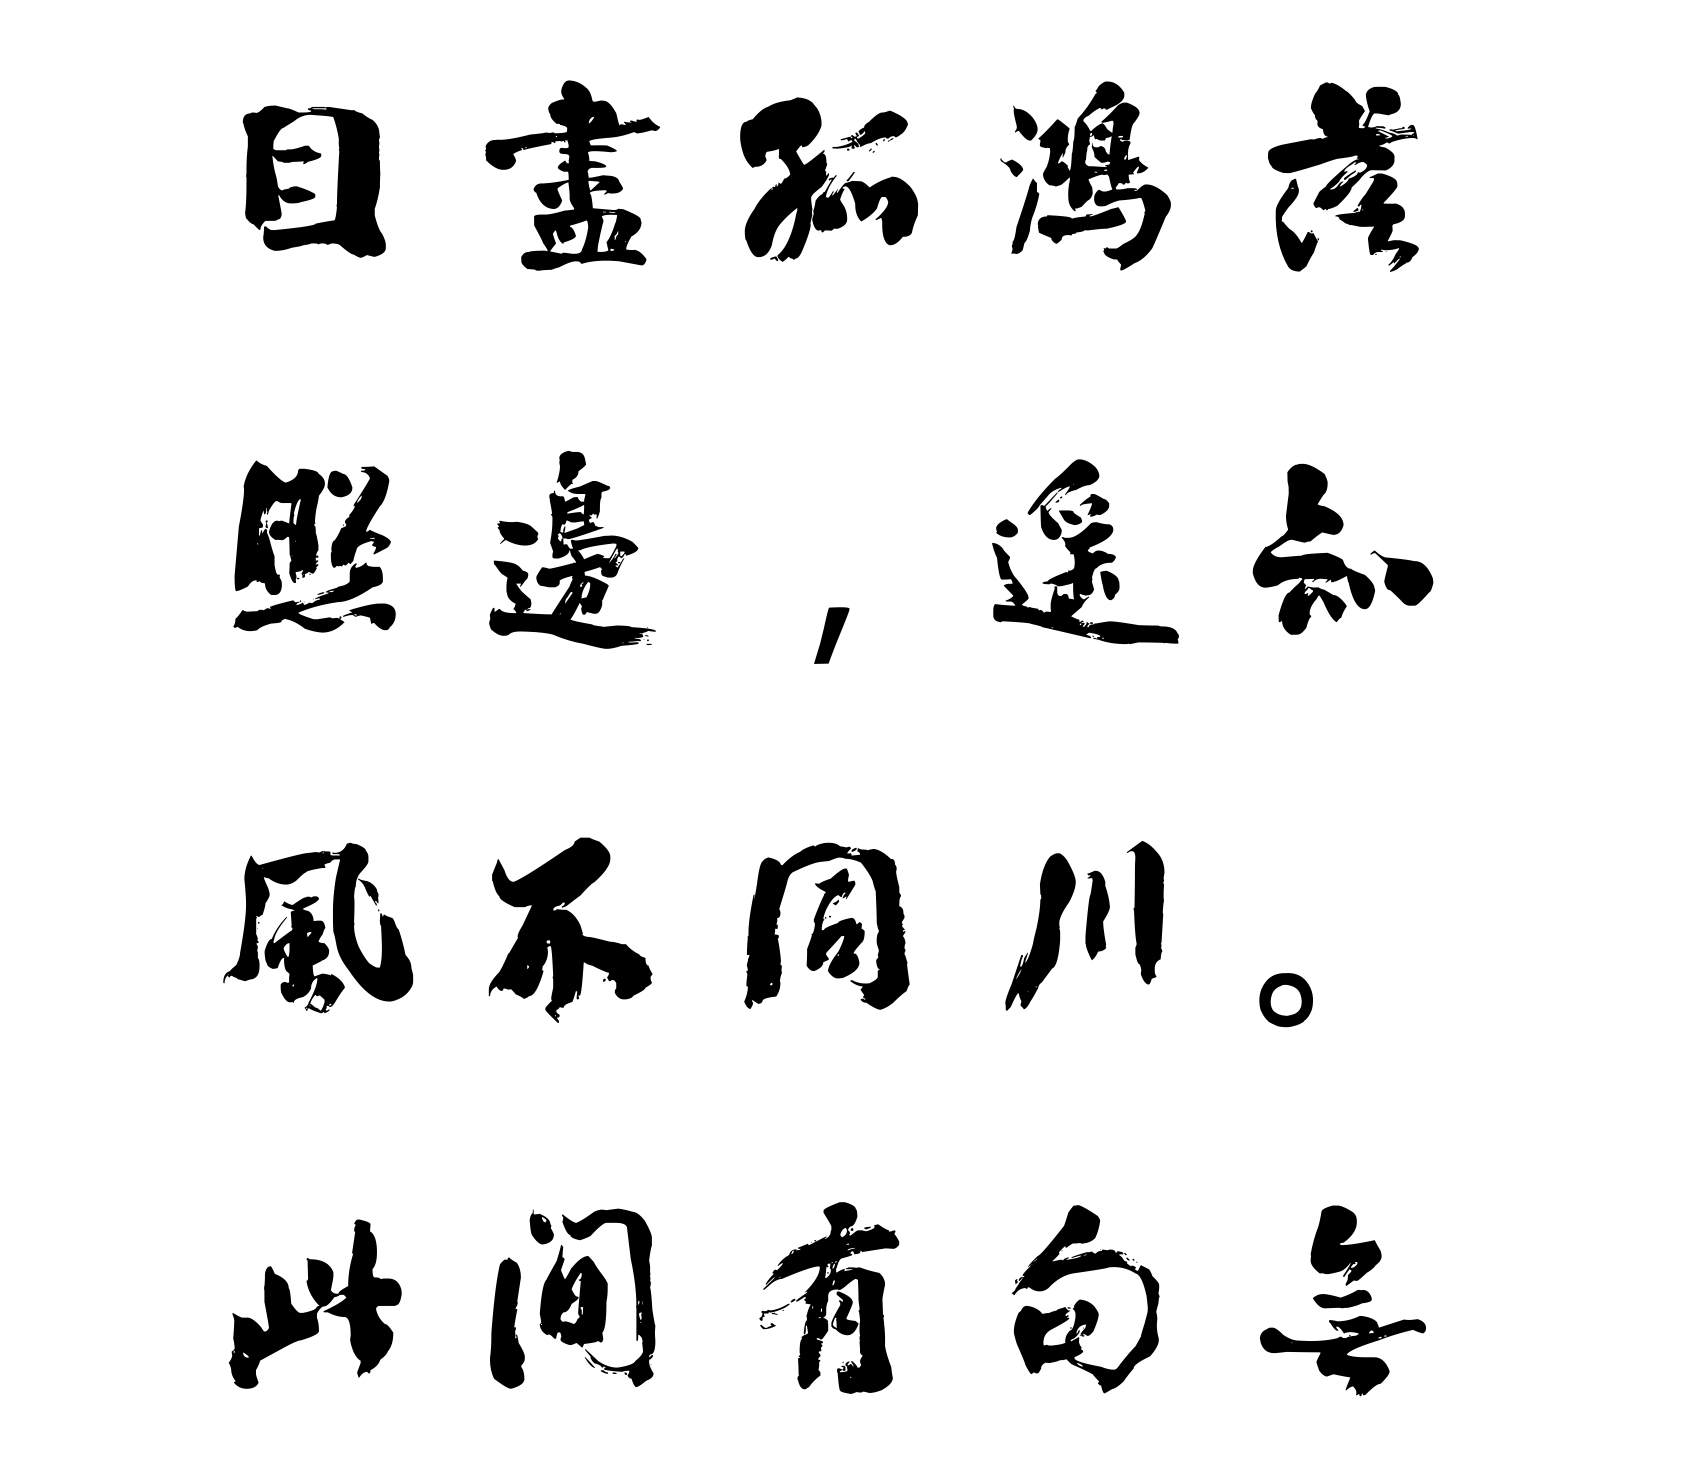 目盡孤鴻落
照邊,遙知
風不同川。
此間有句無